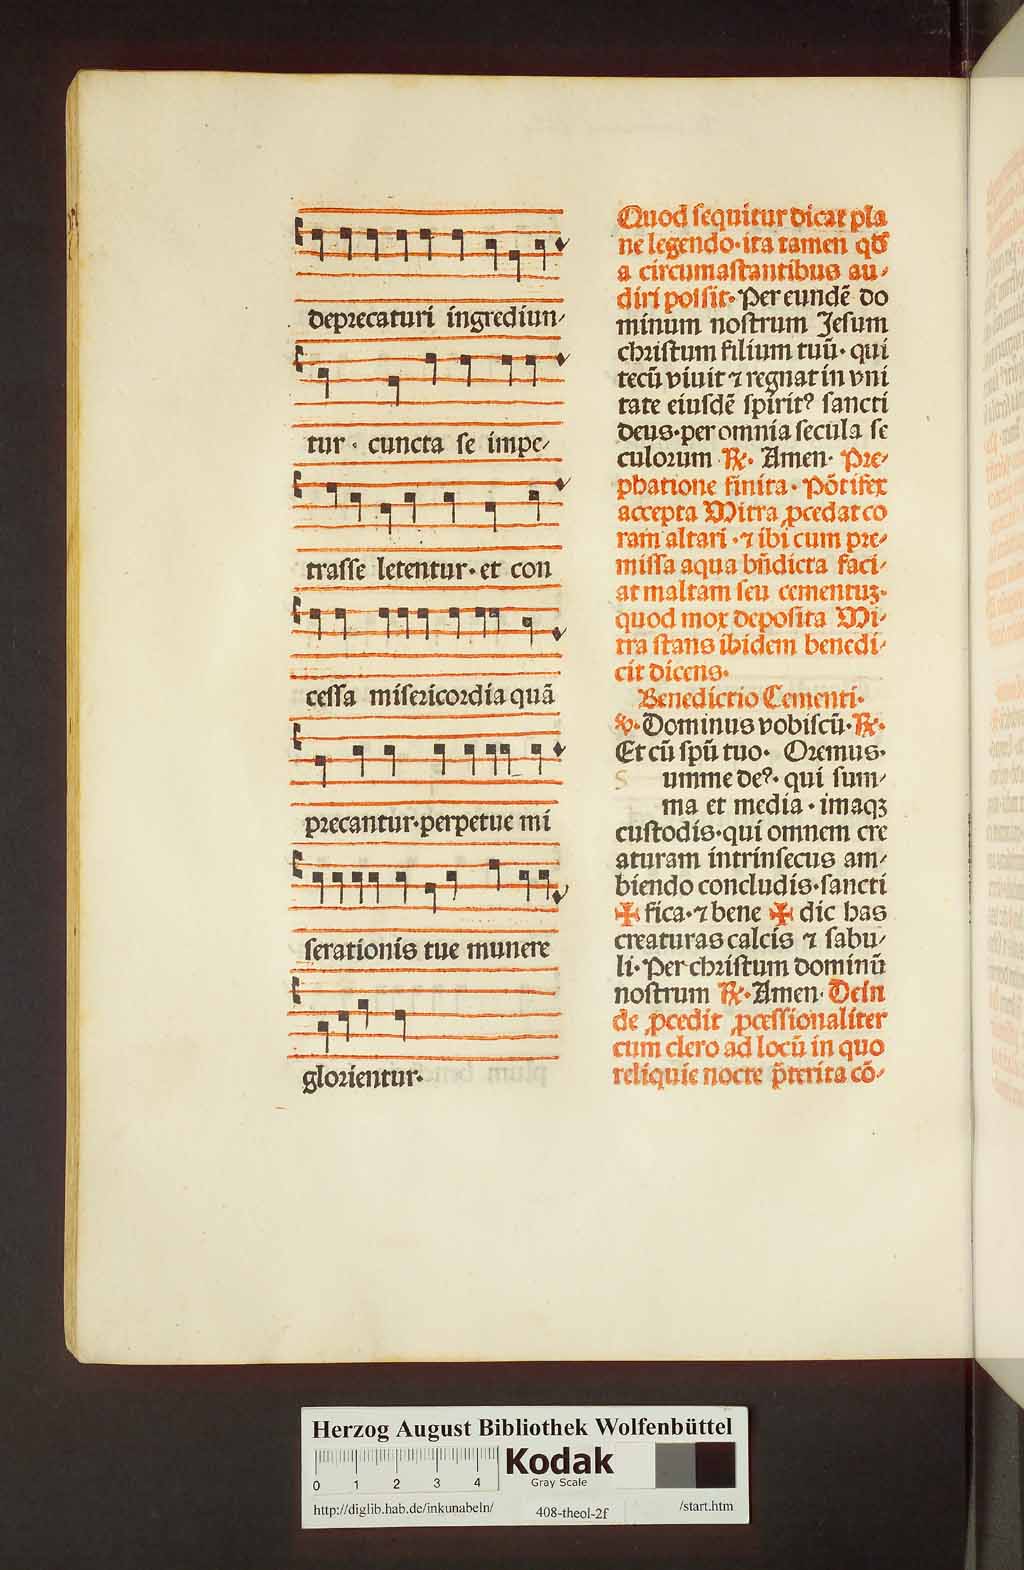 deprecaturi ingrediun⸗
tur · cuncta se impe⸗
trasse letentur · et con
cessa misericordia quā
precantur · perpetue mi
serationis tue munere
glorientur ·
Quod sequitur dicat pla
ne legendo · ita tamen qď
a circumastantibus au⸗
diri possit · Per eundē do
minum nostrum Jesum
christum filium tuū · qui
tecū viuit ⁊ regnat in vni
tate eiusdē spiritꝰ sancti
deus · per omnia secula se
culorum ℟ · Amen · Pre⸗
phatione finita · Pōtifex
accepta Mitra ꝓcedat co
ram altari · ⁊ ibi cum pre⸗
missa aqua bn̄dicta faci⸗
at maltam seu cementuꝫ ·
quod mox deposita Mi⸗
tra stans ibidem benedi⸗
cit dicens ·
Benedictio Cementi ·
℣ · Dominus vobiscū · ℟ ·
Et cū spū tuo · Oremus ·
S umme deꝰ · qui sum⸗
ma et media · imaqꝫ
custodis · qui omnem cre
aturam intrinsecus am⸗
biendo concludis · sancti
✠ fica · ⁊ bene ✠ dic has
creaturas calcis ⁊ sabu⸗
li · Per christum dominū
nostrum ℟ · Amen · Dein
de ꝓcedit ꝓcessionaliter
cum clero ad locū in quo
reliquie nocte p̄terita cō⸗
Herzog August Bibliothek Wolfenbüttel
0 1 2 3 4
Kodak
Gray Scale
http://diglib.hab.de/inkunabeln/ 408-theol-2f /start.htm